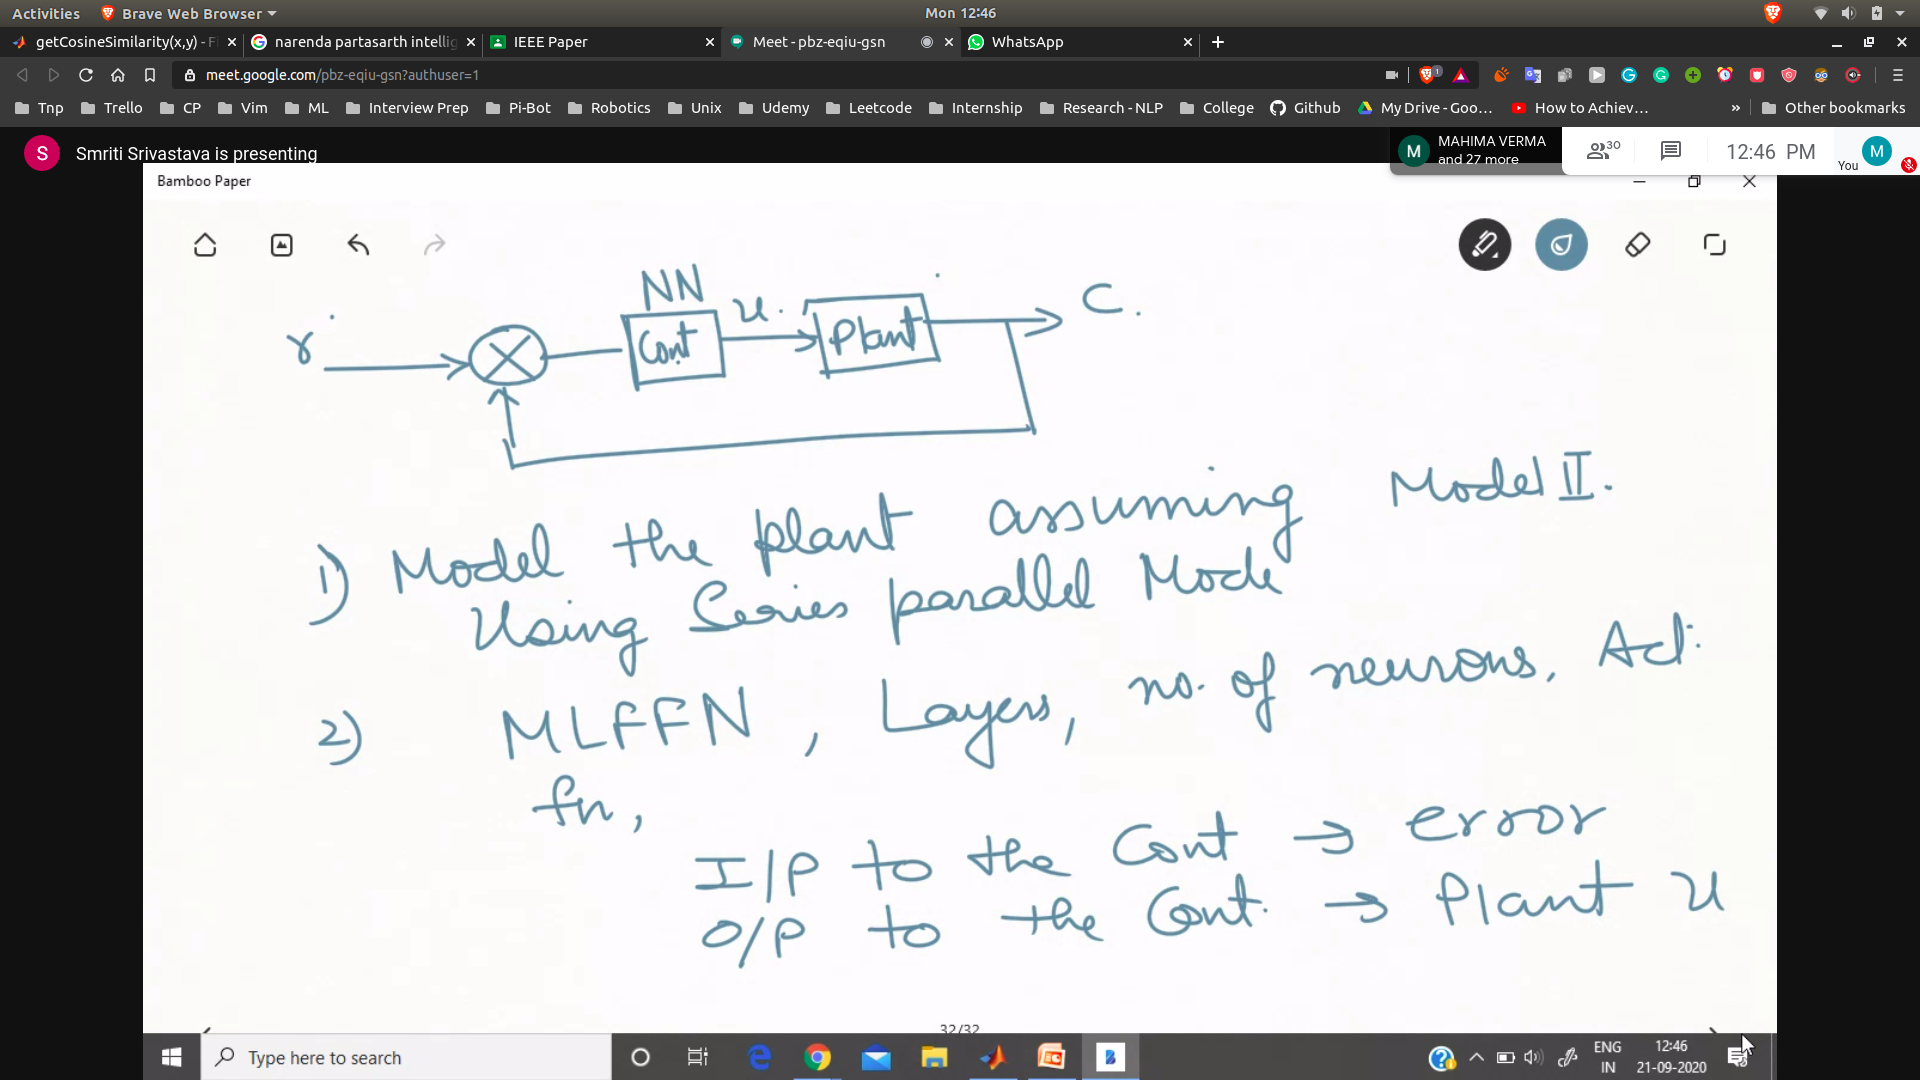 Activities Brave Web Browser Mon 12:46
getCosineSimilarity(x,y) - F narenda partasarth intellig IEEE Paper Meet - pbz-eqiu-gsn WhatsApp
meet.google.com/pbz-eqiu-gsn?authuser=1
Tnp Trello CP Vim ML Interview Prep Pi-Bot Robotics Unix Udemy Leetcode Internship Research - NLP College Github My Drive - Goo... How to Achiev... » Other bookmarks
S Smriti Srivastava is presenting
M MAHIMA VERMA
and 27 more
30
12:46 PM
You M
Bamboo Paper
NN
r Cont u. Plant C.
1) Model the plant assuming Model II.
Using Series parallel Mode
2) MLFFN, Layers, no. of neurons, Act.
fn,
I/P to the Cont → error
O/P to the Cont. → Plant u
32/32
Type here to search
ENG
IN
12:46
21-09-2020